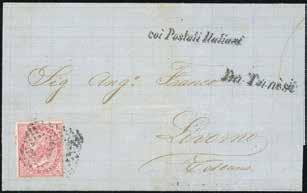 coi Postali Italiani
Da Tunisi
Sig Ang. Franco
Livorno
Toscana